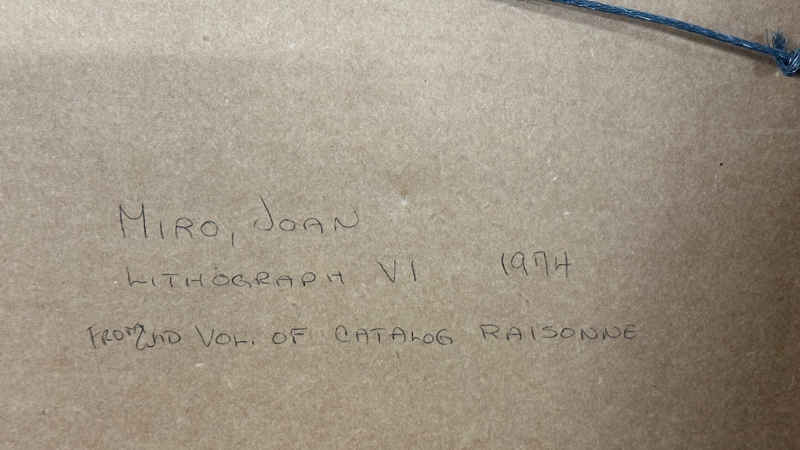 MIRO, JOAN
LITHOGRAPH VI 1974
FROM 2ND VOL. OF CATALOG RAISONNE